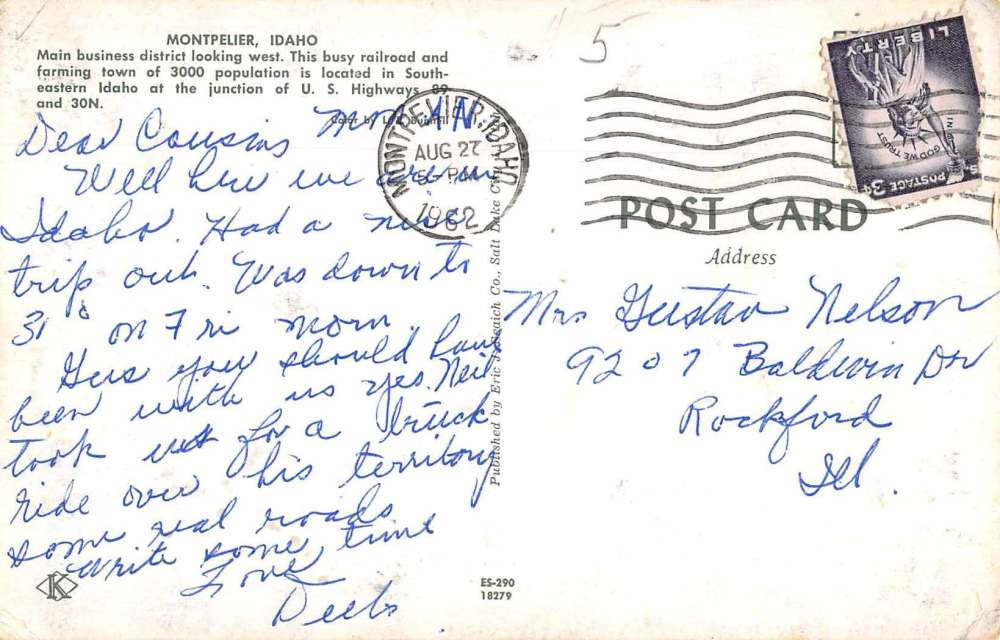 MONTPELIER, IDAHO
Main business district looking west. This busy railroad and
farming town of 3000 population is located in South-
eastern Idaho at the junction of U. S. Highways 89
and 30N.
Color by
Dear Cousins
Well here we are in
Idaho. Had a nice
trip out. Was down to
31° on Fri morn.
Gus you should have
been with us yes. Neil
took us for a truck
ride over his territory
some real roads
Write some time
Love
Deeb
K
Published by Eric J. Seaich Co., Salt Lake City
ES-290
18279
5
MONTPELIER, IDAHO
AUG 27
5 - PM
1962
LIBERTY
IN GOD WE TRUST
U.S. POSTAGE 3¢
POST CARD
Address
Mrs Gustav Nelson
9207 Baldwin Dr
Rockford
Ill.